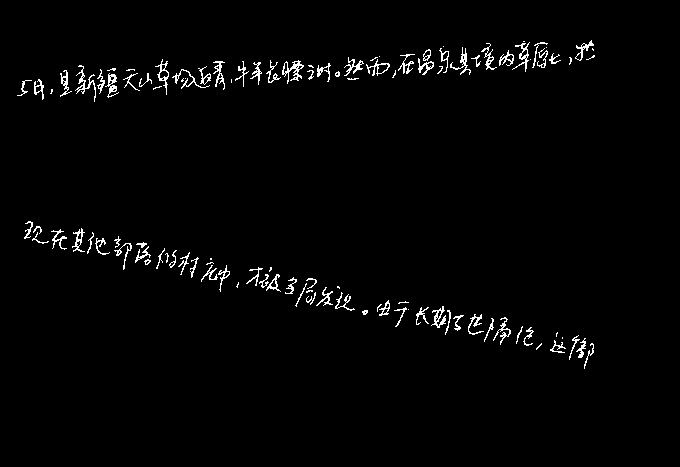 5月,是新疆天山草场返青,牛羊长膘之时。然而,在温泉县境内草原上,
现在其他部落的村庄中,才被当局发现。由于长期与世隔绝,这部